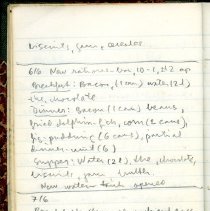 biscuits, jam, cerealos
6/6 New rations box, 10-1, #2 op
Breakfast: Bacon, (1 can) water (2l)
the, chocolate
Dinner: Bacon (1 can) beans,
fried dolphin fish, corn (2 cans),
fig pudding (6 cans), partial
dinner unit (6)
Supper: Water (2l), the, chocolate,
biscuits, jam truffls
New water tank opened
7/6